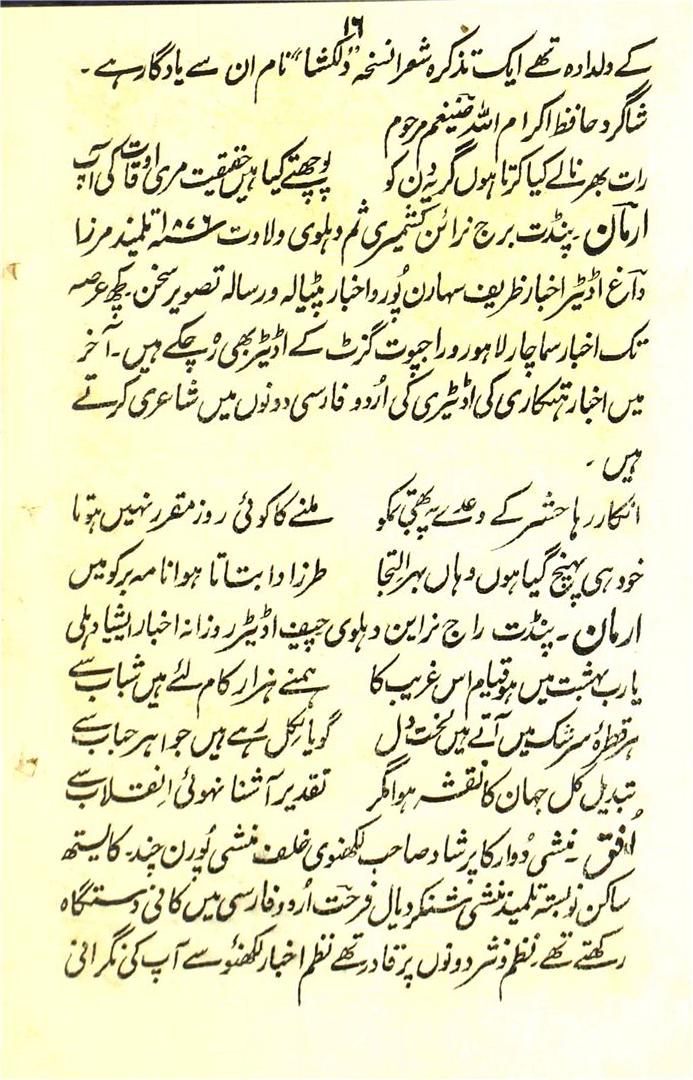 ۱۶
کے دلدادہ تھے ایک تذکرہ شعرا نسخہ "دلکشا" نام ان سے یادگار ہے ۔
شاگرد حافظ اکرام اللہ ضیغم مرحوم
رات بھر نالے کیا کرتا ہوں گریہ دن کو پوچھتے کیا ہیں حقیقت مری اوقات کی آپ
ارمان ۔ پنڈت برج نرائن کشمیری ثم دہلوی ولاوت ۱۸۷۶ء تلمیذ مرزا
داغ اڈیٹر اخبار ظریف سہارن پُور و اخبار پٹیالہ و رسالہ تصویر سخن ۔ کچھ عرصہ
تک اخبار سماچار لاہور و راجپوت گزٹ کے اڈیٹر بھی رہ چکے ہیں ۔ آخر
میں اخبار ہتکاری کی اڈیٹری کی اُردو فارسی دونوں میں شاعری کرتے
ہیں ۔
انکار رہا حشر کے وعدے پہ بھی تمکو ملنے کا کوئی روز مقرر نہیں ہوتا
خود ہی پہنچ گیا ہوں وہاں بہر التجا طرز ادا بتاتا ہوا نامہ بر کو میں
ارمان ۔ پنڈت راج نراین دہلوی چیف اڈیٹر روزانہ اخبار ایشیا دہلی
یارب بہشت میں ہو قیام اس غریب کا ہمنے ہزار کام لئے ہیں شباب سے
ہر قطرۂ سرشک میں آتے ہیں لخت دل گویا نکل رہے ہیں جواہر حباب سے
تبدیل کل جہان کا نقشہ ہوا مگر تقدیر آشنا نہوئی اِنقلاب سے
اُفق ۔ منشی دُوارکا پرشاد صاحب لکھنوی خلف منشی پُورن چند ۔ کایستھ
ساکن نوبستہ تلمیذ منشی شنکر دیال فرحت اُردو فارسی میں کافی دستگاہ
رکھتے تھے ۔ نظم و نثر دونوں پر قادر تھے نظم اخبار لکھنؤ سے آپ کی نگرانی